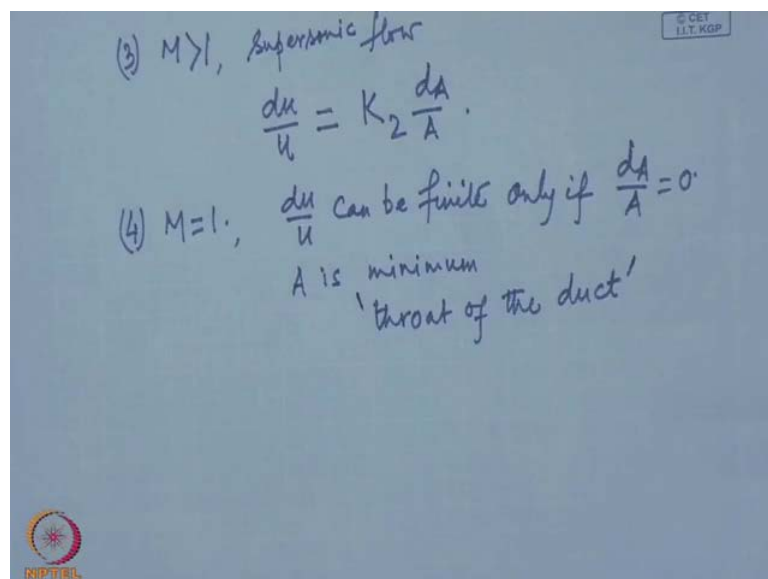 © CET
I.I.T. KGP
(3) M>1, supersonic flow
du/u = K₂ dA/A .
(4) M=1., du/u can be finite only if dA/A =0.
A is minimum
'throat of the duct'
NPTEL